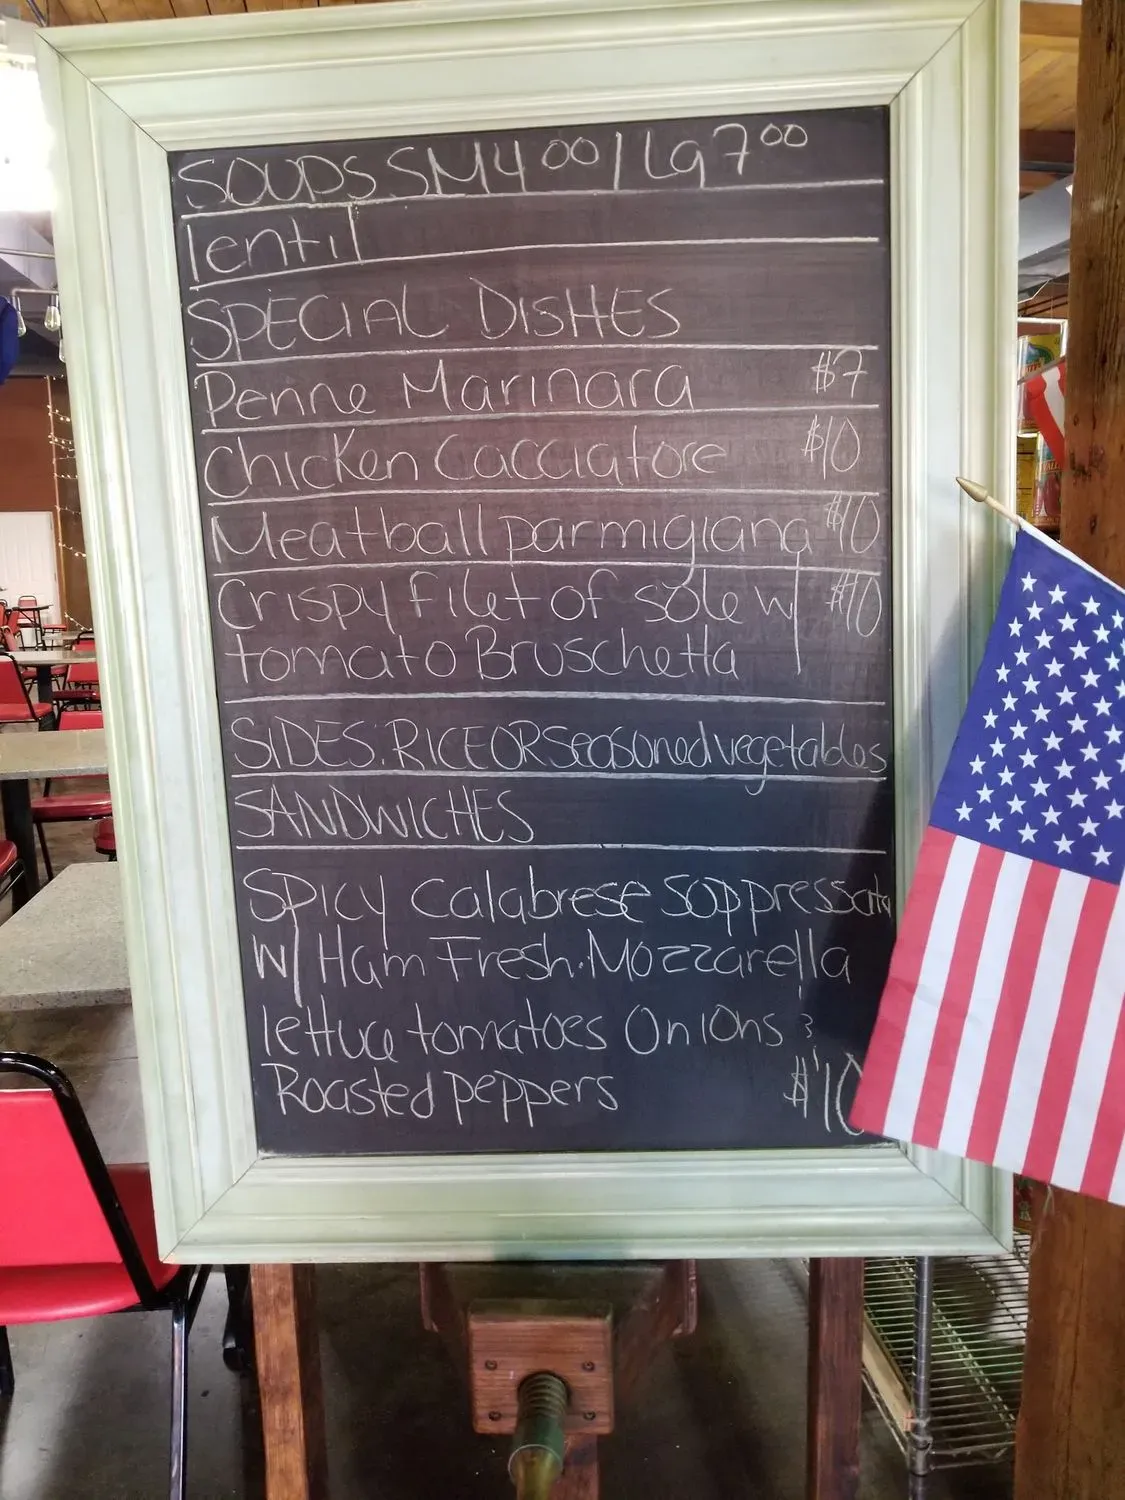 SOUPS SM4 00 / Lg 7 00
lentil
SPECIAL DISHES
Penne Marinara $7
Chicken Cacciatore $10
Meatball parmigiana $10
Crispy filet of sole w/ $10
tomato Bruschetta
SIDES: RICE OR seasoned vegetables
SANDWICHES
SPICY Calabrese Soppressata
w/ Ham Fresh. Mozzarella
lettuce tomatoes Onions &
Roasted peppers $10